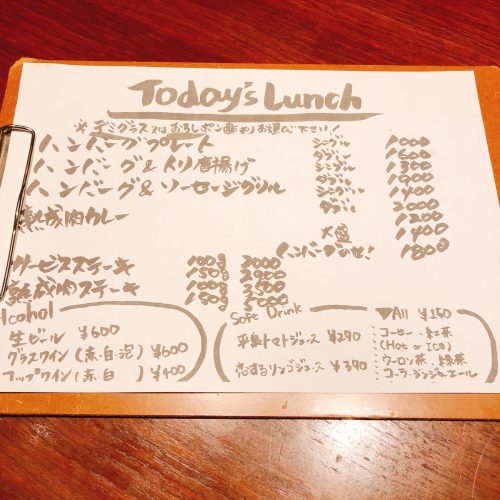 Today's Lunch
※デミグラス又はおろしポン酢よりお選び下さい!
ハンバーグプレート シングル 1000
ダブル 1500
ハンバーグ&トリ唐揚げ シングル 1300
ダブル 1900
ハンバーグ&ソーセージグリル シングル 1400
ダブル 2000
熟成肉カレー 1200
大盛 1400
ハンバーグのせ! 1800
サービスステーキ 100g 2000
150g 2900
熟成肉ステーキ 100g 2500
150g 3500
Alcohol
生ビール ¥600
グラスワイン(赤・白・泡) ¥600
コップワイン(赤・白) ¥400
Soft Drink
平集トマトジュース ¥290
恋するリンゴジュース ¥390
▼All ¥150
・コーヒー・紅茶
(Hot or ICE)
・ウーロン茶・緑茶
・コーラ・ジンジャエール